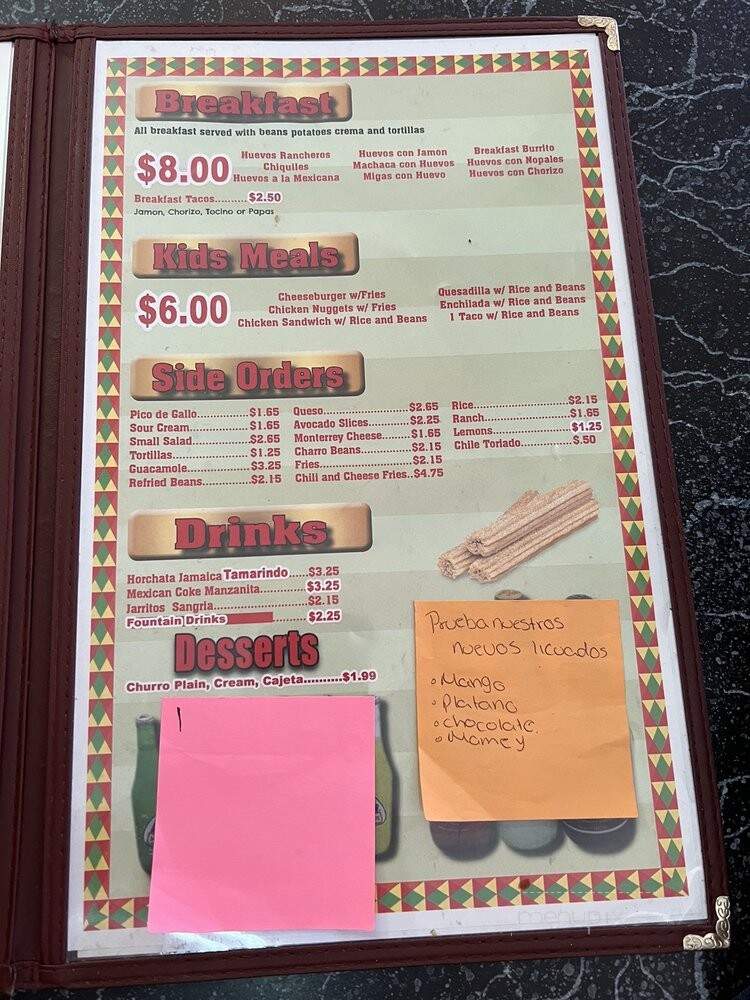 Breakfast
All breakfast served with beans potatoes crema and tortillas
$8.00
Huevos Rancheros
Chiquiles
Huevos a la Mexicana
Huevos con Jamon
Machaca con Huevos
Migas con Huevo
Breakfast Burrito
Huevos con Nopales
Huevos con Chorizo
Breakfast Tacos.......... $2.50
Jamon, Chorizo, Tocino or Papas
Kids Meals
$6.00
Cheeseburger w/Fries
Chicken Nuggets w/ Fries
Chicken Sandwich w/ Rice and Beans
Quesadilla w/ Rice and Beans
Enchilada w/ Rice and Beans
1 Taco w/ Rice and Beans
Side Orders
Pico de Gallo..............$1.65
Sour Cream................$1.65
Small Salad................$2.65
Tortillas.....................$1.25
Guacamole................$3.25
Refried Beans.............$2.15
Queso......................$2.65
Avocado Slices..........$2.25
Monterrey Cheese.......$1.65
Charro Beans.............$2.15
Fries.........................$2.15
Chili and Cheese Fries..$4.75
Rice.........................$2.15
Ranch.......................$1.65
Lemons.....................$1.25
Chile Toriado..............$.50
Drinks
Horchata Jamaica Tamarindo.....$3.25
Mexican Coke Manzanita...........$3.25
Jarritos Sangria.......................$2.15
Fountain Drinks ........$2.25
Desserts
Churro Plain, Cream, Cajeta..........$1.99
Prueba nuestros
nuevos licuados
• Mango
• Platano
• chocolate.
• Mamey